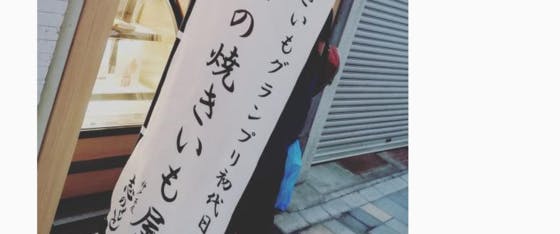 いもグランプリ初代日
の焼きいも屋